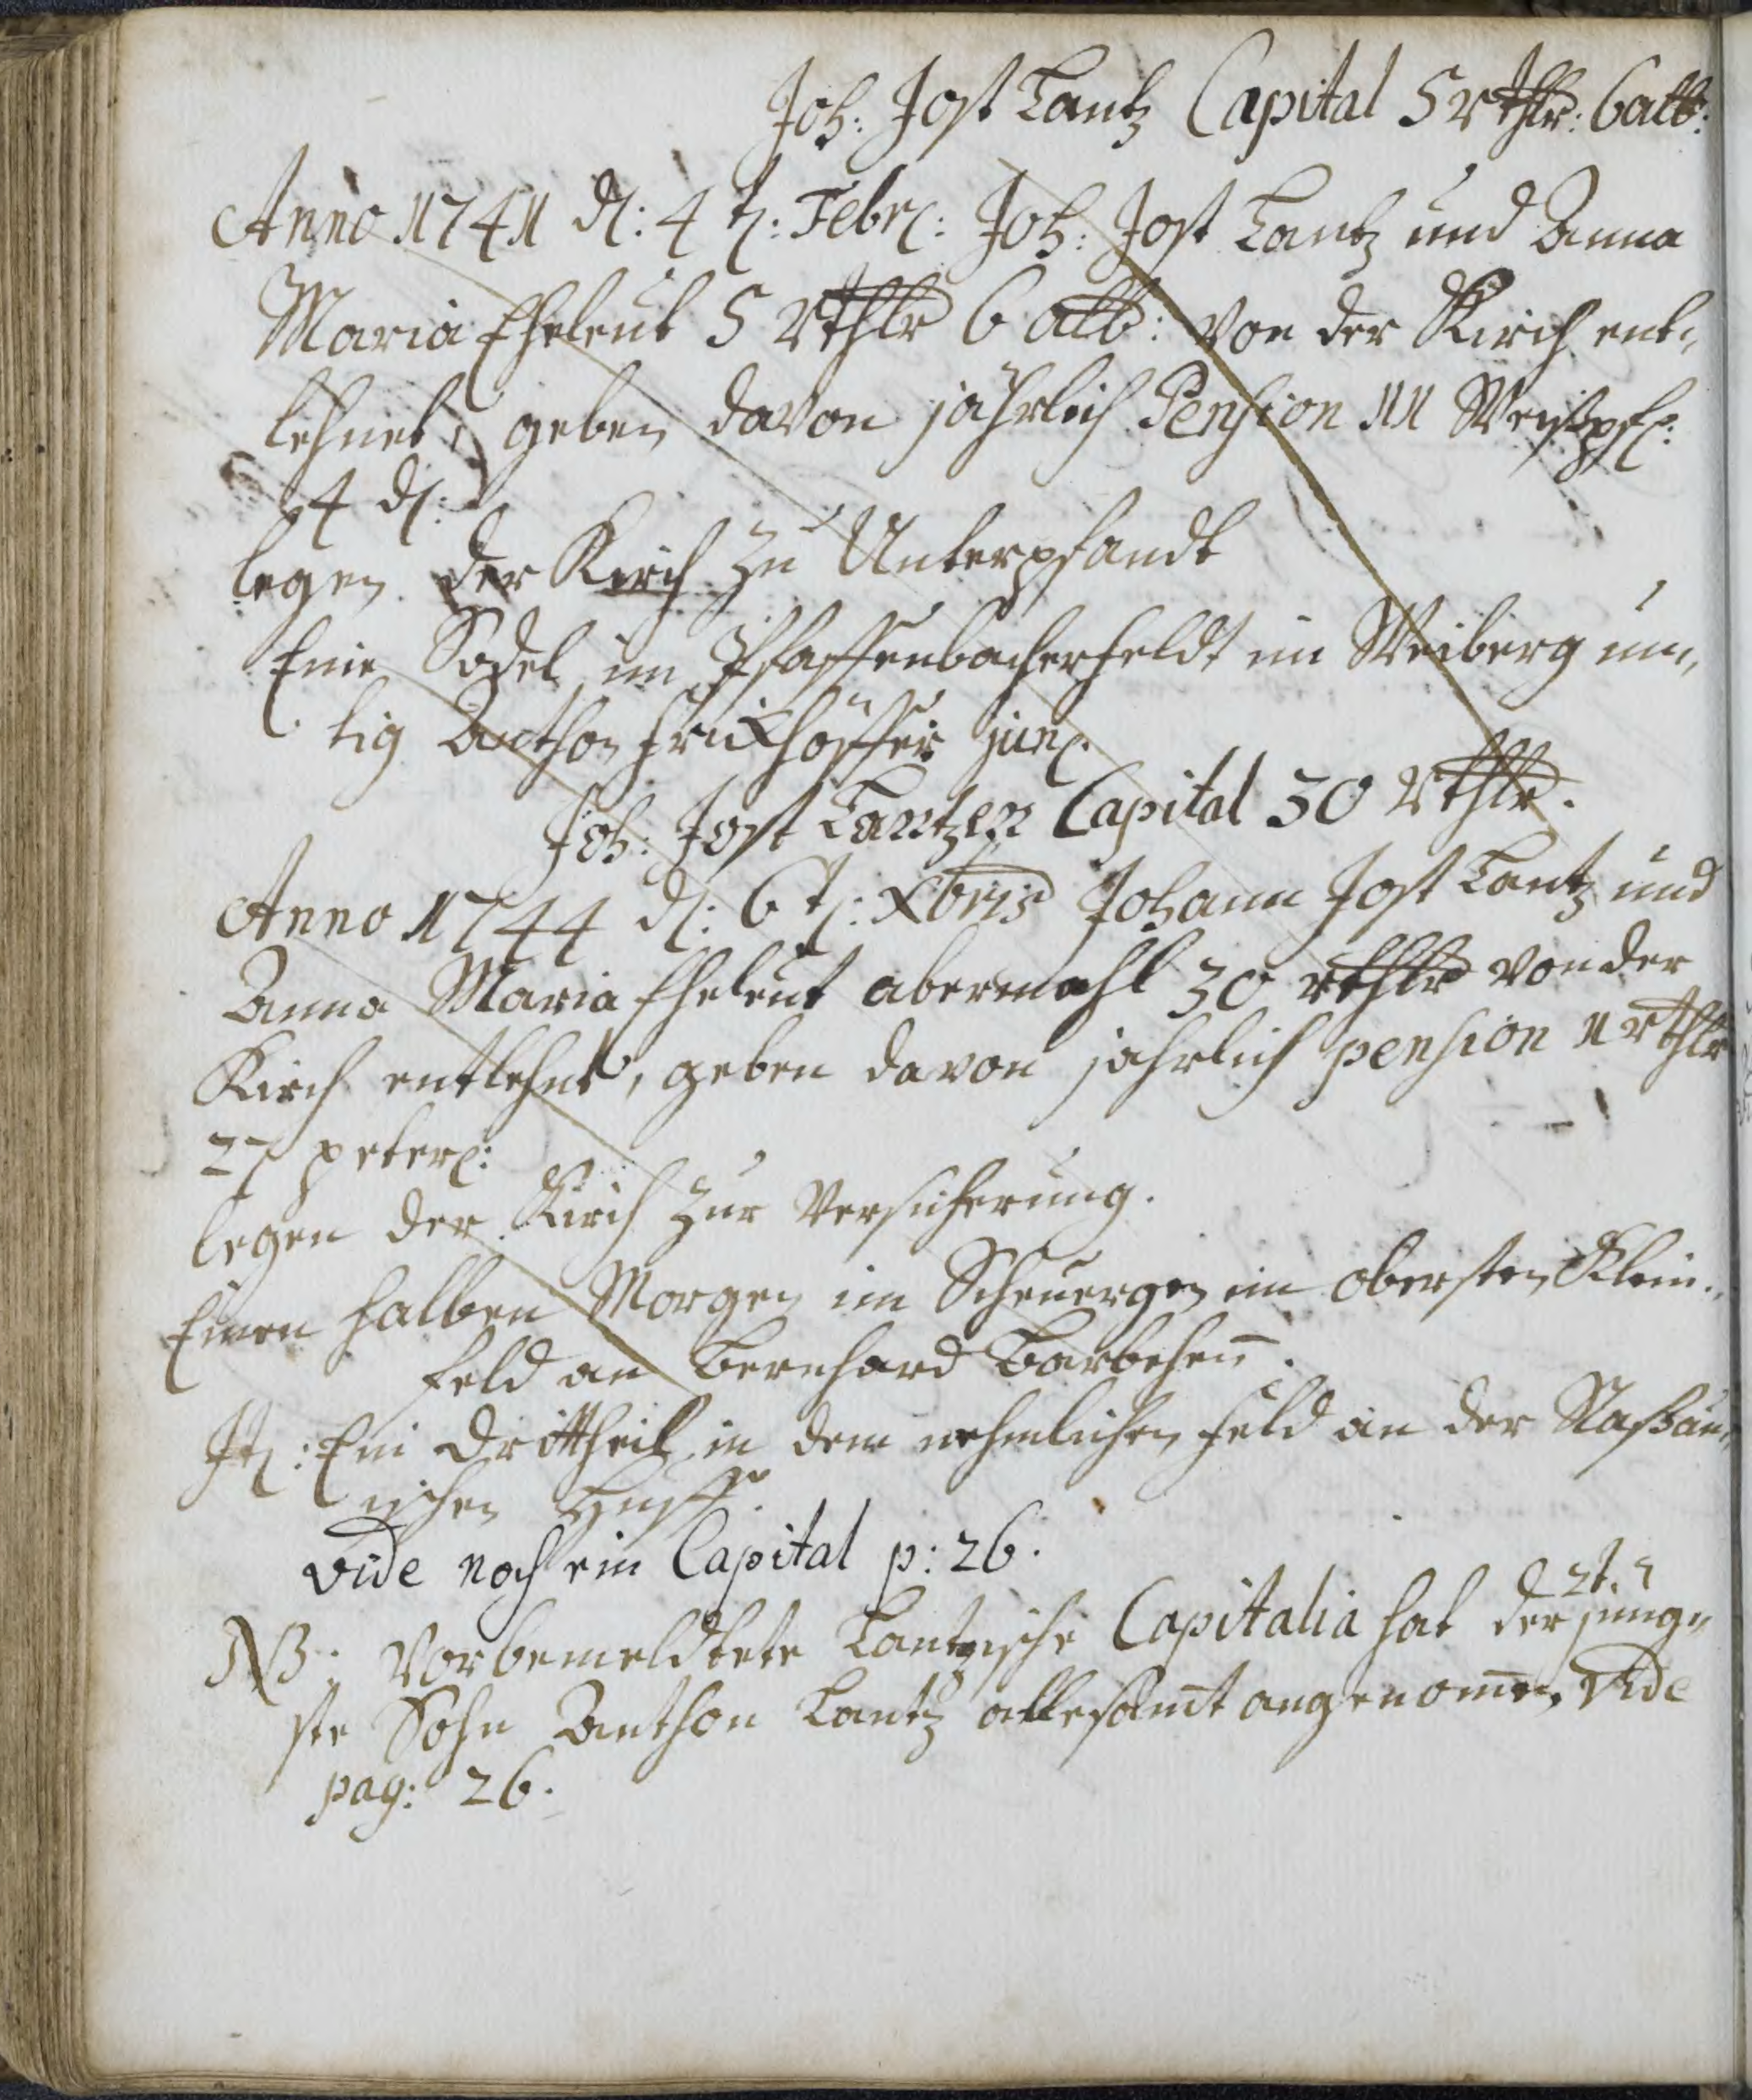 Joh: Jost Lantz Capital 5 rthlr: 6 alb:
Anno 1741 d: 4 t: Febr: Joh: Jost Lantz und Anna
Maria Eheleut 5 Rthlr 6 alb: von der Kirch ent,
lehnet, geben davon jährlich Pension 11 Weißpf:
4 d:
legen der Kirch zu Unterpfandt
Eine Sodel im Pfaffenbacherfeldt im Weiberg
Anthon Frickhöffer jun:
Joh: Jost Lantzen Capital 30 Rthlr.
Anno 1744 d: 6 t: Xbris Johann Jost Lantz und
Anna Maria Eheleut abermahl 30 rthlr von der
Kirch entlehnt, geben davon jahrlich pension 1 rthlr
27 peter:
legen der Kirch zur Versicherung.
Einen halben Morgen im Scheuergen im obersten Klein,
feld an Bernhard
It: Ein Drittheil in dem nehmlichen feld an der Naßau,
ischen
vide noch ein Capital p: 26.
NB: Vorbemeldtete Lantzische Capitalia hat der jung,
ste Sohn Anthon Lantz allesamt angenomen, vide
pag: 26.